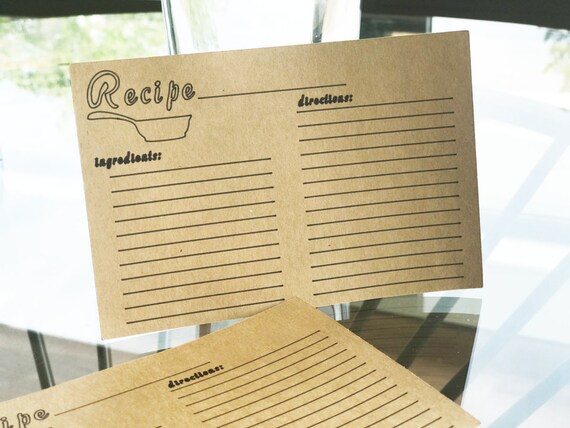 Recipe
directions:
ingredients:
directions:
ipe